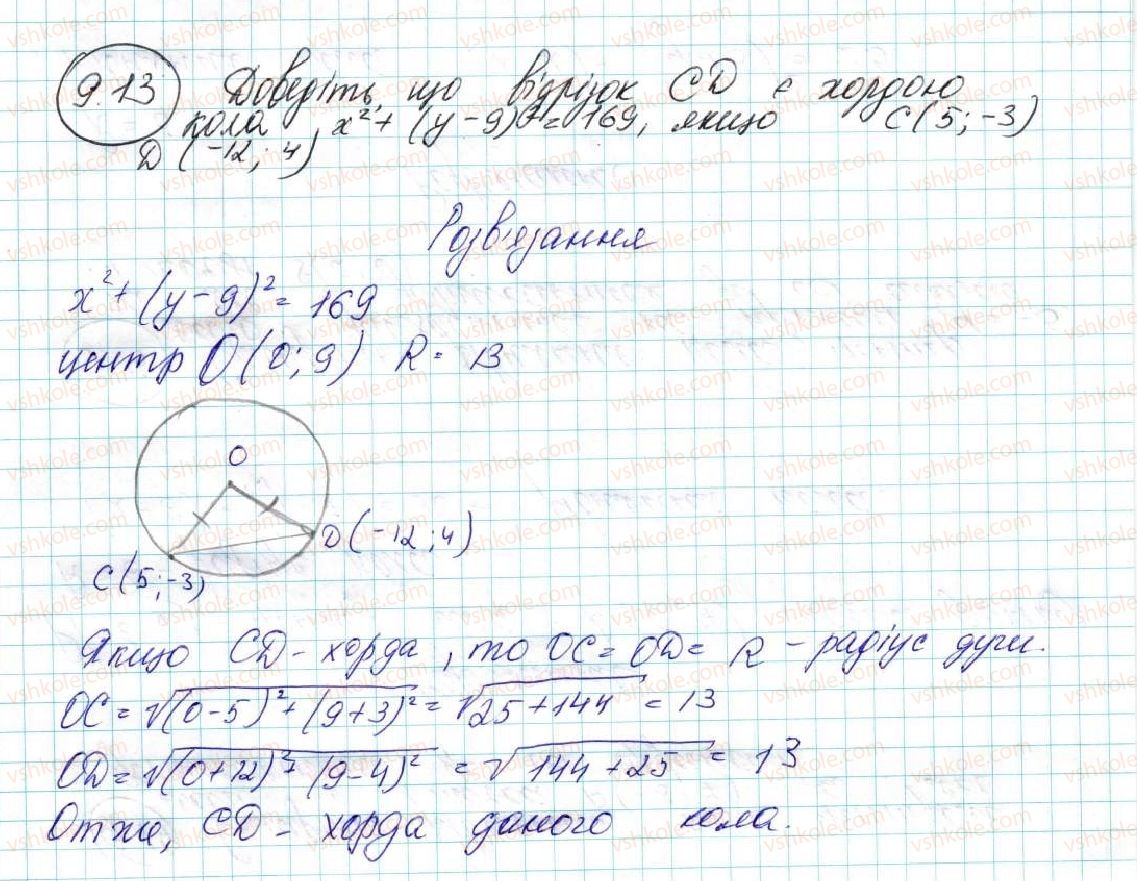 9.13 Доведіть, що відрізок CD є хордою
кола x² + (y - 9)² = 169, якщо C(5; -3)
D (-12; 4)
Розв'язання
x² + (y - 9)² = 169
центр O(0; 9) R = 13
O
D(-12; 4)
C(5; -3)
Якщо CD - хорда, то OC = OD = R - радіус дуги.
OC = √(0-5)² + (9+3)² = √25 + 144 = 13
OD = √(0+12)² (9-4)² = √144 + 25 = 13
Отже, CD - хорда даного кола.